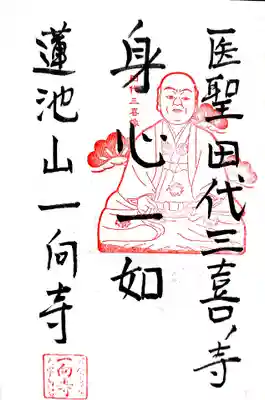 医聖田代三喜ノ寺
身心一如
蓮池山一向寺
田代三喜
一向寺